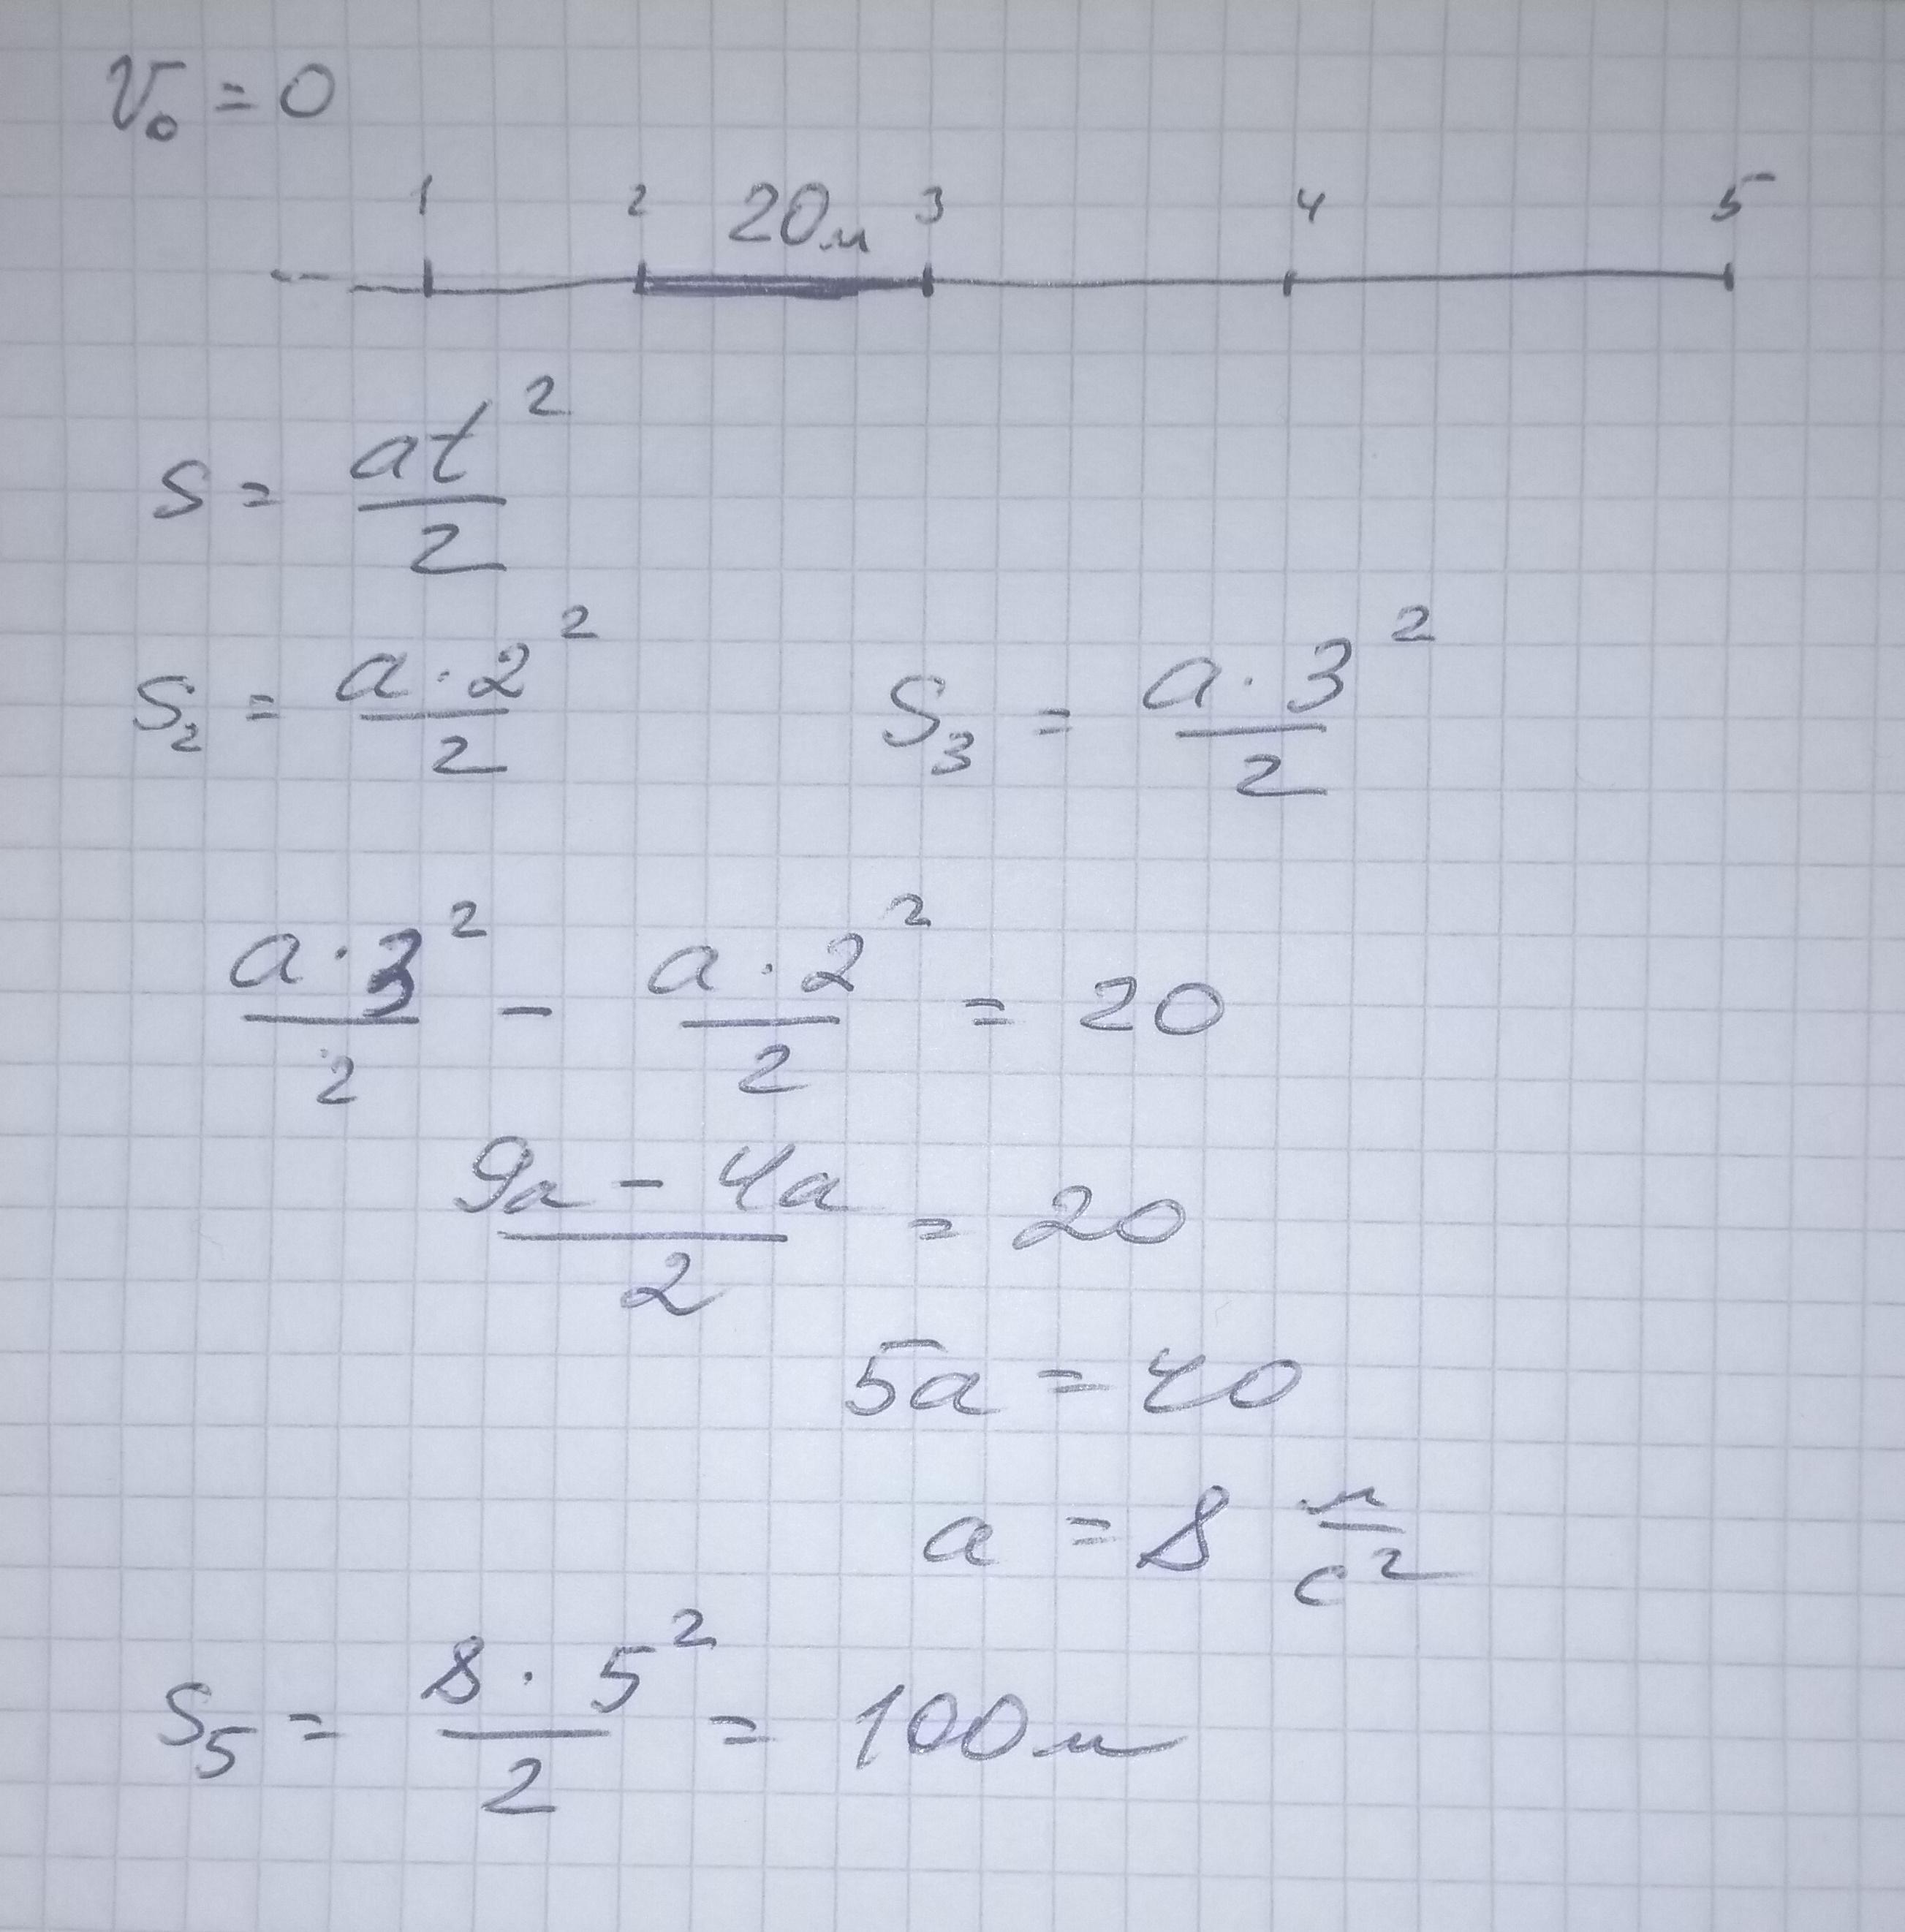 V₀ = 0
1 2 20м 3 4 5
S = at²/2
S₂ = a·2²/2 S₃ = a·3²/2
a·3²/2 − a·2²/2 = 20
9a − 4a/2 = 20
5a = 40
a = 8 м/с²
S₅ = 8·5²/2 = 100м